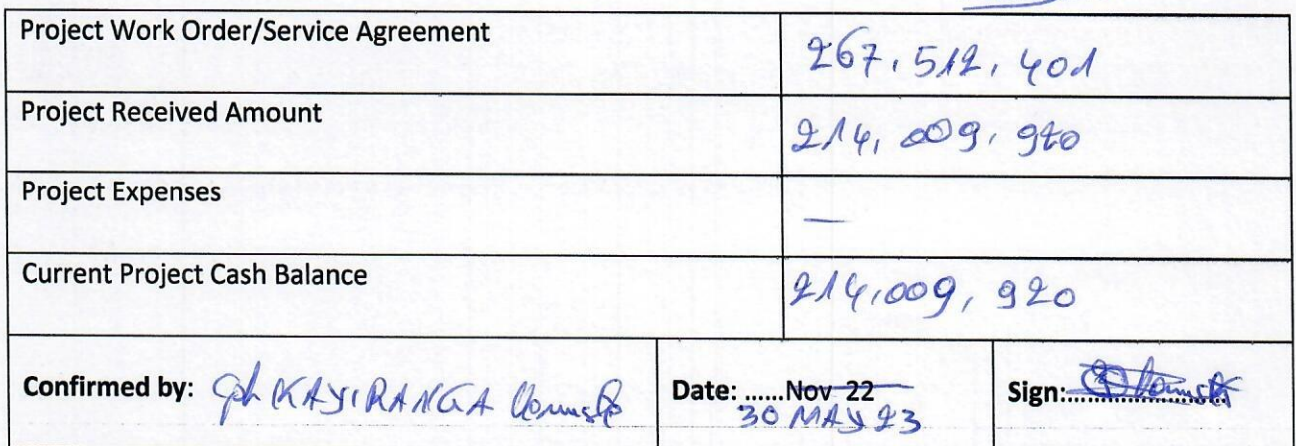 Project Work Order/Service Agreement
267,512,401
Project Received Amount
214,009,920
Project Expenses
—
Current Project Cash Balance
214,009,920
Confirmed by: KAYIRANGA
Date: ......Nov 22
30 MAY 23
Sign: